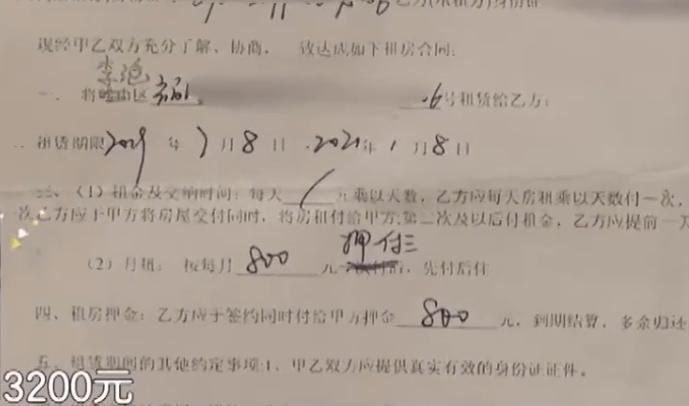 乙方(承租方)身份证
现经甲乙双方充分了解、协商, 一致达成如下租房合同:
李沧
一、将 区 号租赁给乙方;
租赁期限 年 7月8日 2021年1月8日
三、(1)租金及交纳时间:每天 元乘以天数,乙方应每天房租乘以天数付一次,
次乙方应于甲方将房屋交付同时,将房租付给甲方;第二次及以后付租金,乙方应提前一
押付三
(2)月租: 按每月800元 先付后住
四、租房押金:乙方应于签约同时付给甲方押金800元,到期结算,多余归还
五、租赁期间的其他约定事项:1、甲乙双方应提供真实有效的身份证证件。
3200元